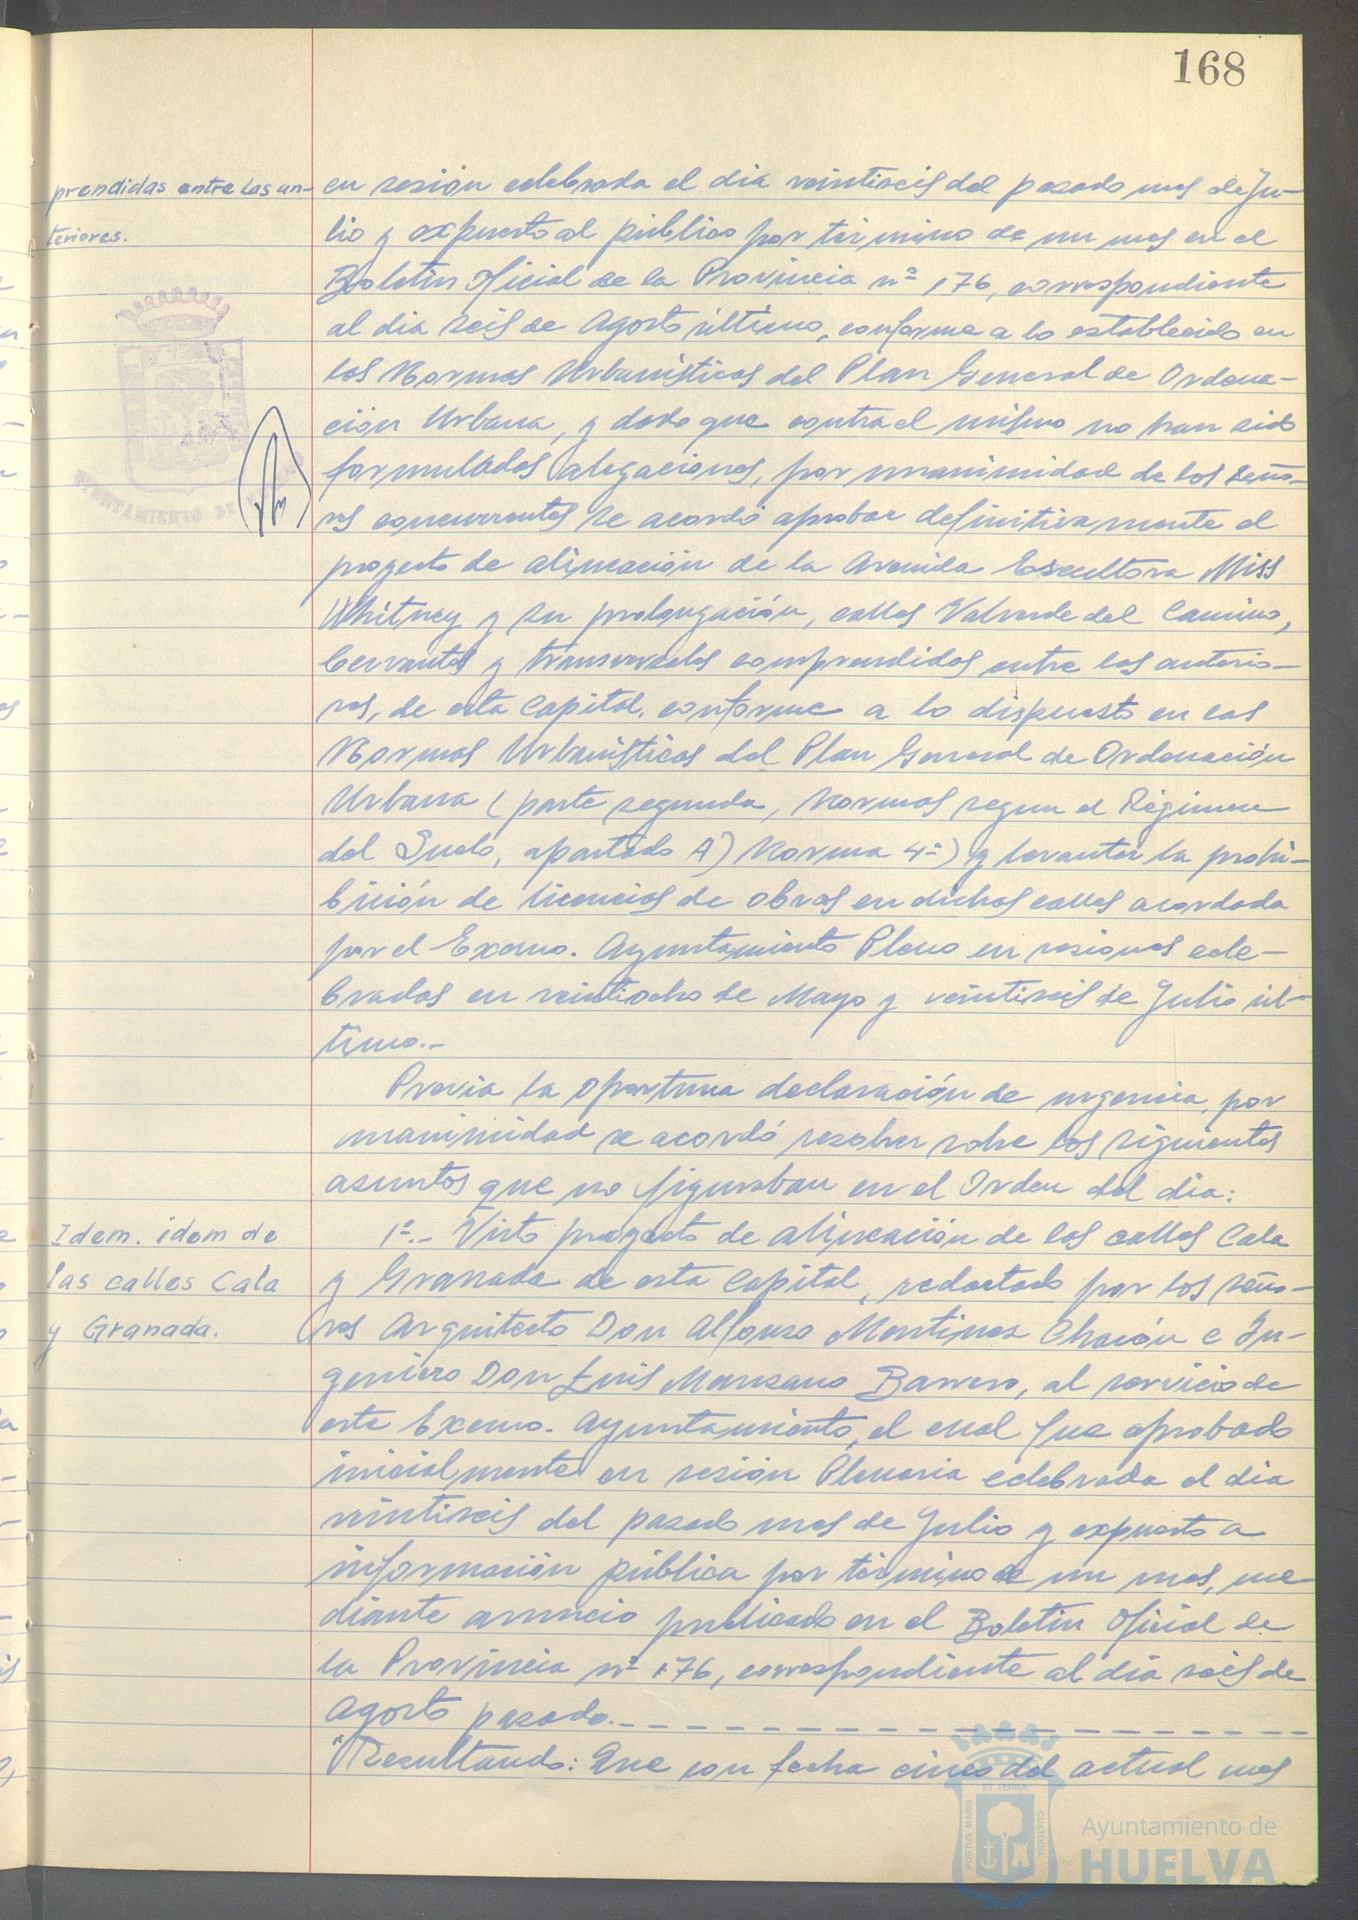 168
prendidas entre las an-
teriores.
en sesión celebrada el dia veintiseis del pasado mes de Ju-
lio y expuesto al público por término de un mes en el
Boletín Oficial de la Provincia nº 176, correspondiente
al dia seis de Agosto último, conforme a lo establecido en
las Normas Urbanísticas del Plan General de Ordena-
ción Urbana, y dado que contra el mismo no han sido
formuladas alegaciones, por unanimidad de los seño-
res concurrentes se acordó aprobar definitivamente el
proyecto de alineación de la Avenida Escultora Miss
Whitney y su prolongación, calles Valverde del Camino,
Cervantes y transversales comprendidas entre las anterio-
res, de esta Capital, conforme a lo dispuesto en las
Normas Urbanísticas del Plan General de Ordenación
Urbana (parte segunda, Normas segun el Régimen
del Suelo, apartado A) Norma 4ª) y levantar la prohi-
bición de licencias de obras en dichas calles acordada
por el Excmo. Ayuntamiento Pleno en sesiones cele-
bradas en veintiocho de Mayo y veintiseis de Julio úl-
timo.-
Previa la oportuna declaración de urgencia, por
unanimidad se acordó resolver sobre los siguientes
asuntos que no figuraban en el Orden del dia:
Idem. idem de
las calles Cala
y Granada.
1º.- Visto proyecto de alineación de las calles Cala
y Granada de esta Capital, redactado por los seño-
res Arquitecto Don Alfonso Martinez Chacón e In-
geniero Don Luis Manzano Barrero, al servicio de
este Excmo. Ayuntamiento, el cual fue aprobado
inicialmente en sesión Plenaria celebrada el dia
veintiseis del pasado mes de Julio y expuesto a
información pública por término de un mes, me
diante anuncio publicado en el Boletín Oficial de
la Provincia nº 176, correspondiente al dia seis de
Agosto pasado.-
"Resultando: Que con fecha cinco del actual mes
AYUNTAMIENTO DE
PORTUS MARIS
ET TERRA
CUSTODIA
Ayuntamiento de
HUELVA